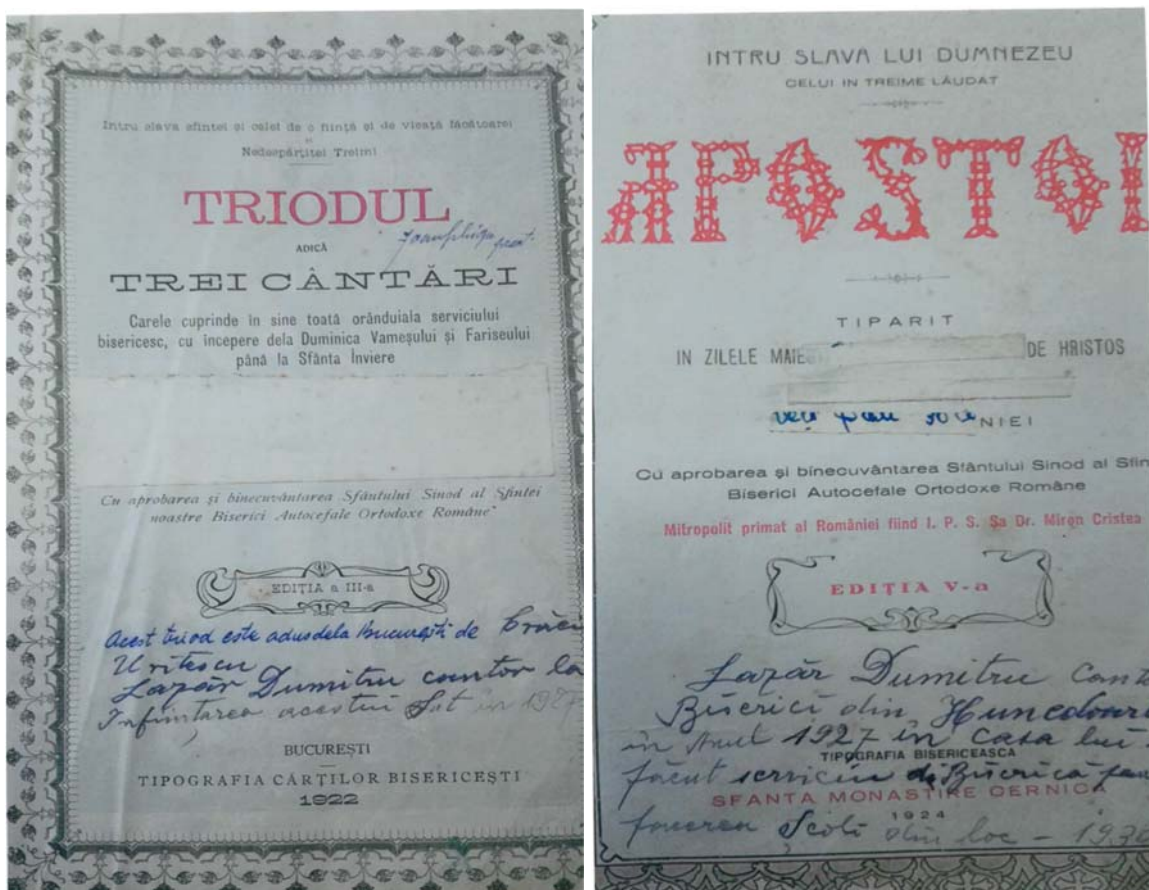 Intru slava sfintei și celei de o ființă și de vieață făcătoarei
și
Nedespărțitei Treimi
TRIODUL
ADICĂ
TREI CÂNTĂRI
Carele cuprinde în sine toată orânduiala serviciului
bisericesc, cu începere dela Duminica Vameșului și Fariseului
până la Sfânta Inviere
Cu aprobarea și binecuvântarea Sfântului Sinod al Sfintei
noastre Biserici Autocefale Ortodoxe Române
EDIȚIA a III-a
Acest triod este adus dela București de
Uritescu
Lazăr Dumitru cantor la
Înființarea acestui Sat in 1927
BUCUREȘTI
TIPOGRAFIA CĂRȚILOR BISERICEȘTI
1922
INTRU SLAVA LUI DUMNEZEU
CELUI IN TREIME LĂUDAT
APOSTOL
TIPARIT
IN ZILELE MAIE DE HRISTOS
NIEI
Cu aprobarea și binecuvântarea Sfântului Sinod al Sfin
Biserici Autocefale Ortodoxe Române
Mitropolit primat al României fiind I. P. S. Sa Dr. Miron Cristea
EDIȚIA V-a
Lazăr Dumitru Canto
Biserici din Hunedoar
in Anul 1927 in casa lui
TIPOGRAFIA BISERICEASCA
făcut serviciu de Biserică
SFANTA MONASTIRE CERNICA
1924
facerea Școli din loc - 1930